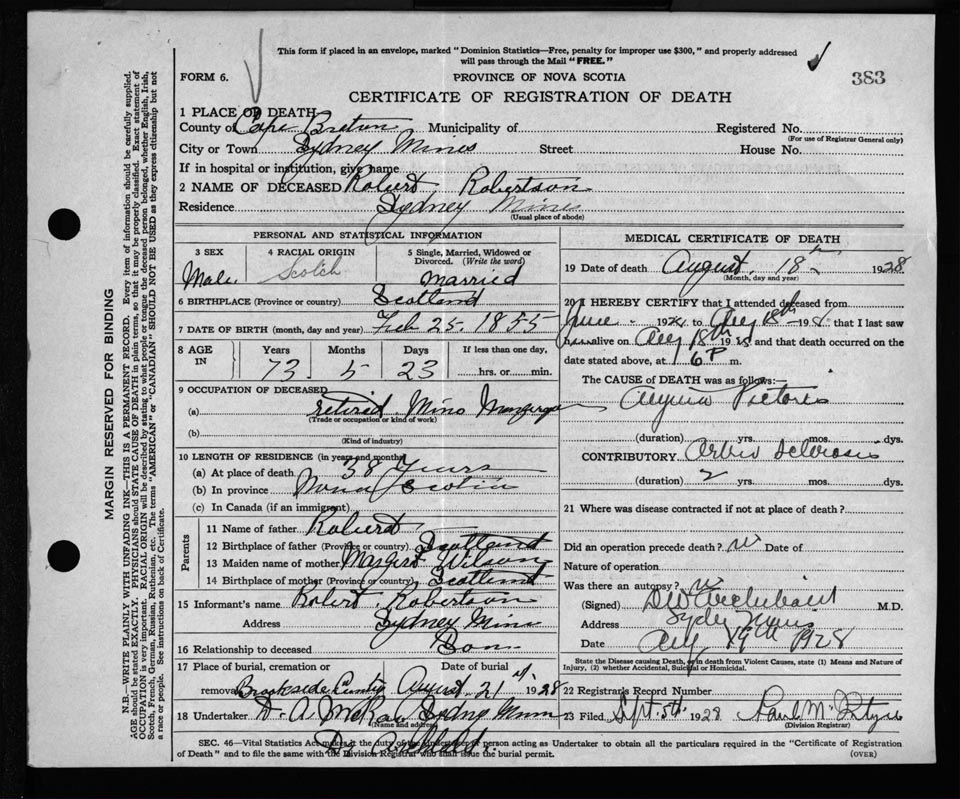 This form if placed in an envelope, marked "Dominion Statistics—Free, penalty for improper use $300," and properly addressed
will pass through the Mail "FREE."
FORM 6.
PROVINCE OF NOVA SCOTIA
383
CERTIFICATE OF REGISTRATION OF DEATH
1 PLACE OF DEATH
County of Cape Breton Municipality of Registered No.
(For use of Registrar General only)
City or Town Sydney Mines Street House No.
If in hospital or institution, give name
2 NAME OF DECEASED Robert Robertson
Residence Sydney Mines
(Usual place of abode)
PERSONAL AND STATISTICAL INFORMATION
3 SEX 4 RACIAL ORIGIN 5 Single, Married, Widowed or Divorced. (Write the word)
Male Scotch Married
6 BIRTHPLACE (Province or country) Scotland
7 DATE OF BIRTH (month, day and year) Feb 25. 1855
8 AGE IN Years Months Days If less than one day,
73 5 23 hrs. or min.
9 OCCUPATION OF DECEASED
(a) retired Mine
(Trade or occupation or kind of work)
(b)
(Kind of industry)
10 LENGTH OF RESIDENCE (in years and months)
(a) At place of death 38 Years
(b) In province Nova Scotia
(c) In Canada (if an immigrant)
Parents
11 Name of father Robert
12 Birthplace of father (Province or country) Scotland
13 Maiden name of mother Wilson
14 Birthplace of mother (Province or country) Scotland
15 Informant's name Robert Robertson
Address Sydney Mines
16 Relationship to deceased Son
17 Place of burial, cremation or removal Date of burial
Brookside August 21 1928
18 Undertaker D. A. McRae Sydney Mines
(Name and address)
MEDICAL CERTIFICATE OF DEATH
19 Date of death August 18th 1928
(Month, day and year)
20 I HEREBY CERTIFY that I attended deceased from
June 1928 to Aug 18th 198, that I last saw
h alive on Aug 18th 1928 and that death occurred on the
date stated above, at 6 P m.
The CAUSE OF DEATH was as follows:—
Angina Pectoris
(duration) yrs. mos. dys.
CONTRIBUTORY Sclerosis
(duration) 2 yrs. mos. dys.
21 Where was disease contracted if not at place of death?
Did an operation precede death? no Date of
Nature of operation
Was there an autopsy? no
(Signed) M.D.
Address Sydney Mines
Date Aug 19th 1928
State the Disease causing Death, or in death from Violent Causes, state (1) Means and Nature of
Injury, (2) whether Accidental, Suicidal or Homicidal.
22 Registrar's Record Number
23 Filed Sept. 5th 1928
(Division Registrar)
SEC. 46—Vital Statistics Act makes it the duty of the Undertaker or person acting as Undertaker to obtain all the particulars required in the "Certificate of Registration
of Death" and to file the same with the Division Registrar who shall issue the burial permit.
(OVER)
MARGIN RESERVED FOR BINDING
N.B.—WRITE PLAINLY WITH UNFADING INK—THIS IS A PERMANENT RECORD. Every item of information should be carefully supplied.
AGE should be stated EXACTLY. PHYSICIANS should STATE CAUSE OF DEATH in plain terms, so that it may be properly classified. Exact statement of
OCCUPATION is very important. RACIAL ORIGIN will be described by stating to what people or tongue the deceased person belonged, whether English, Irish,
Scotch, French, German, Russian, Ruthenian, etc. The terms "AMERICAN" or "CANADIAN" SHOULD NOT BE USED as they express citizenship but not
a race or people. See instructions on back of Certificate.